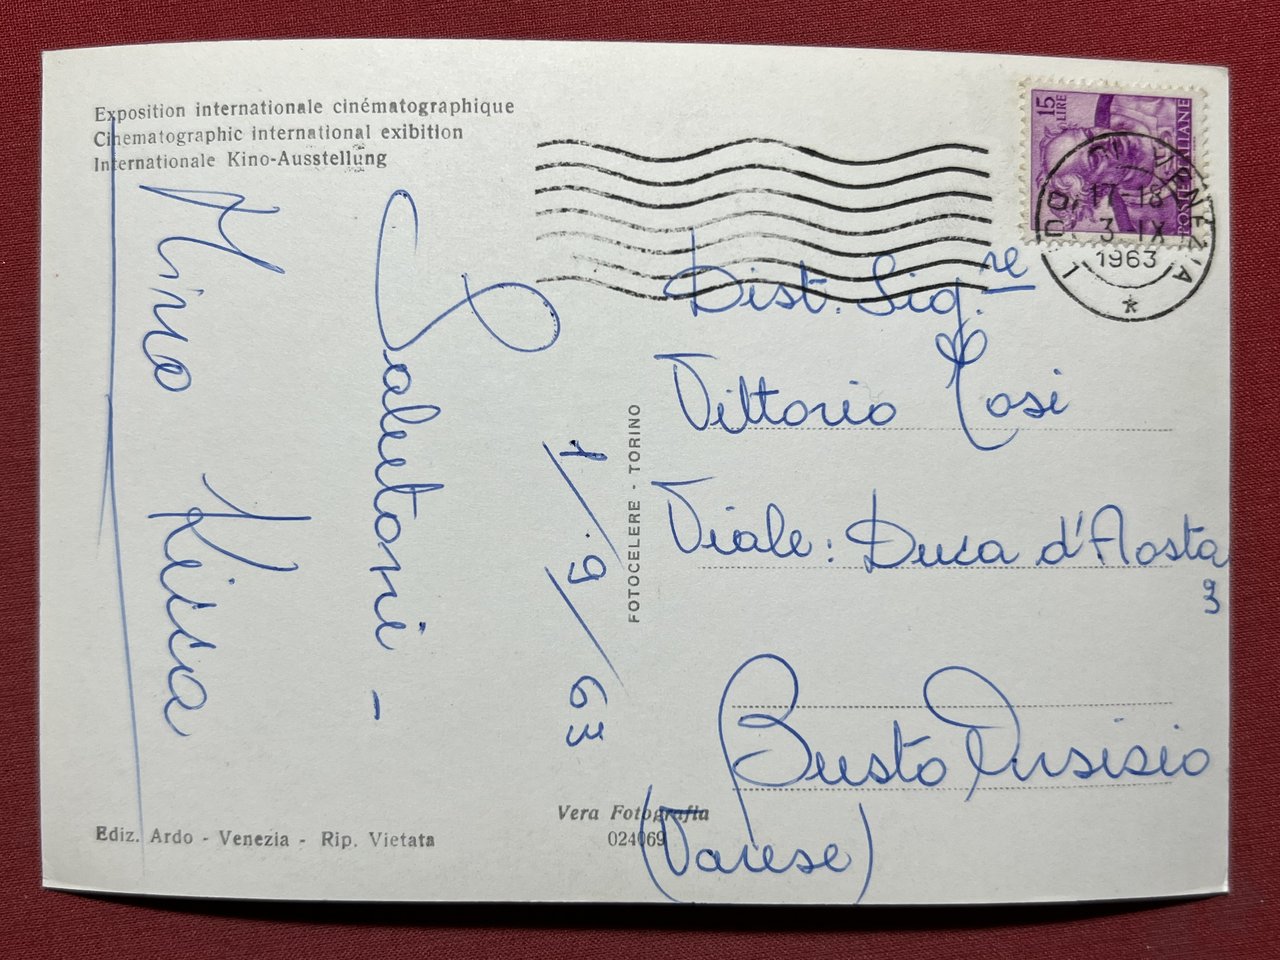 Exposition internationale cinématographique
Cinematographic international exibition
Internationale Kino-Ausstellung
15 LIRE
POSTE ITALIANE
17-18
3 IX
1963
Dist. Sig.re
Vittorio Tosi
Viale: Duca d'Aosta
9
Busto Arsisio
(Varese)
1/9/63
Salutoni -
Mino
FOTOCELERE - TORINO
Vera Fotografia
024069
Ediz. Ardo - Venezia - Rip. Vietata